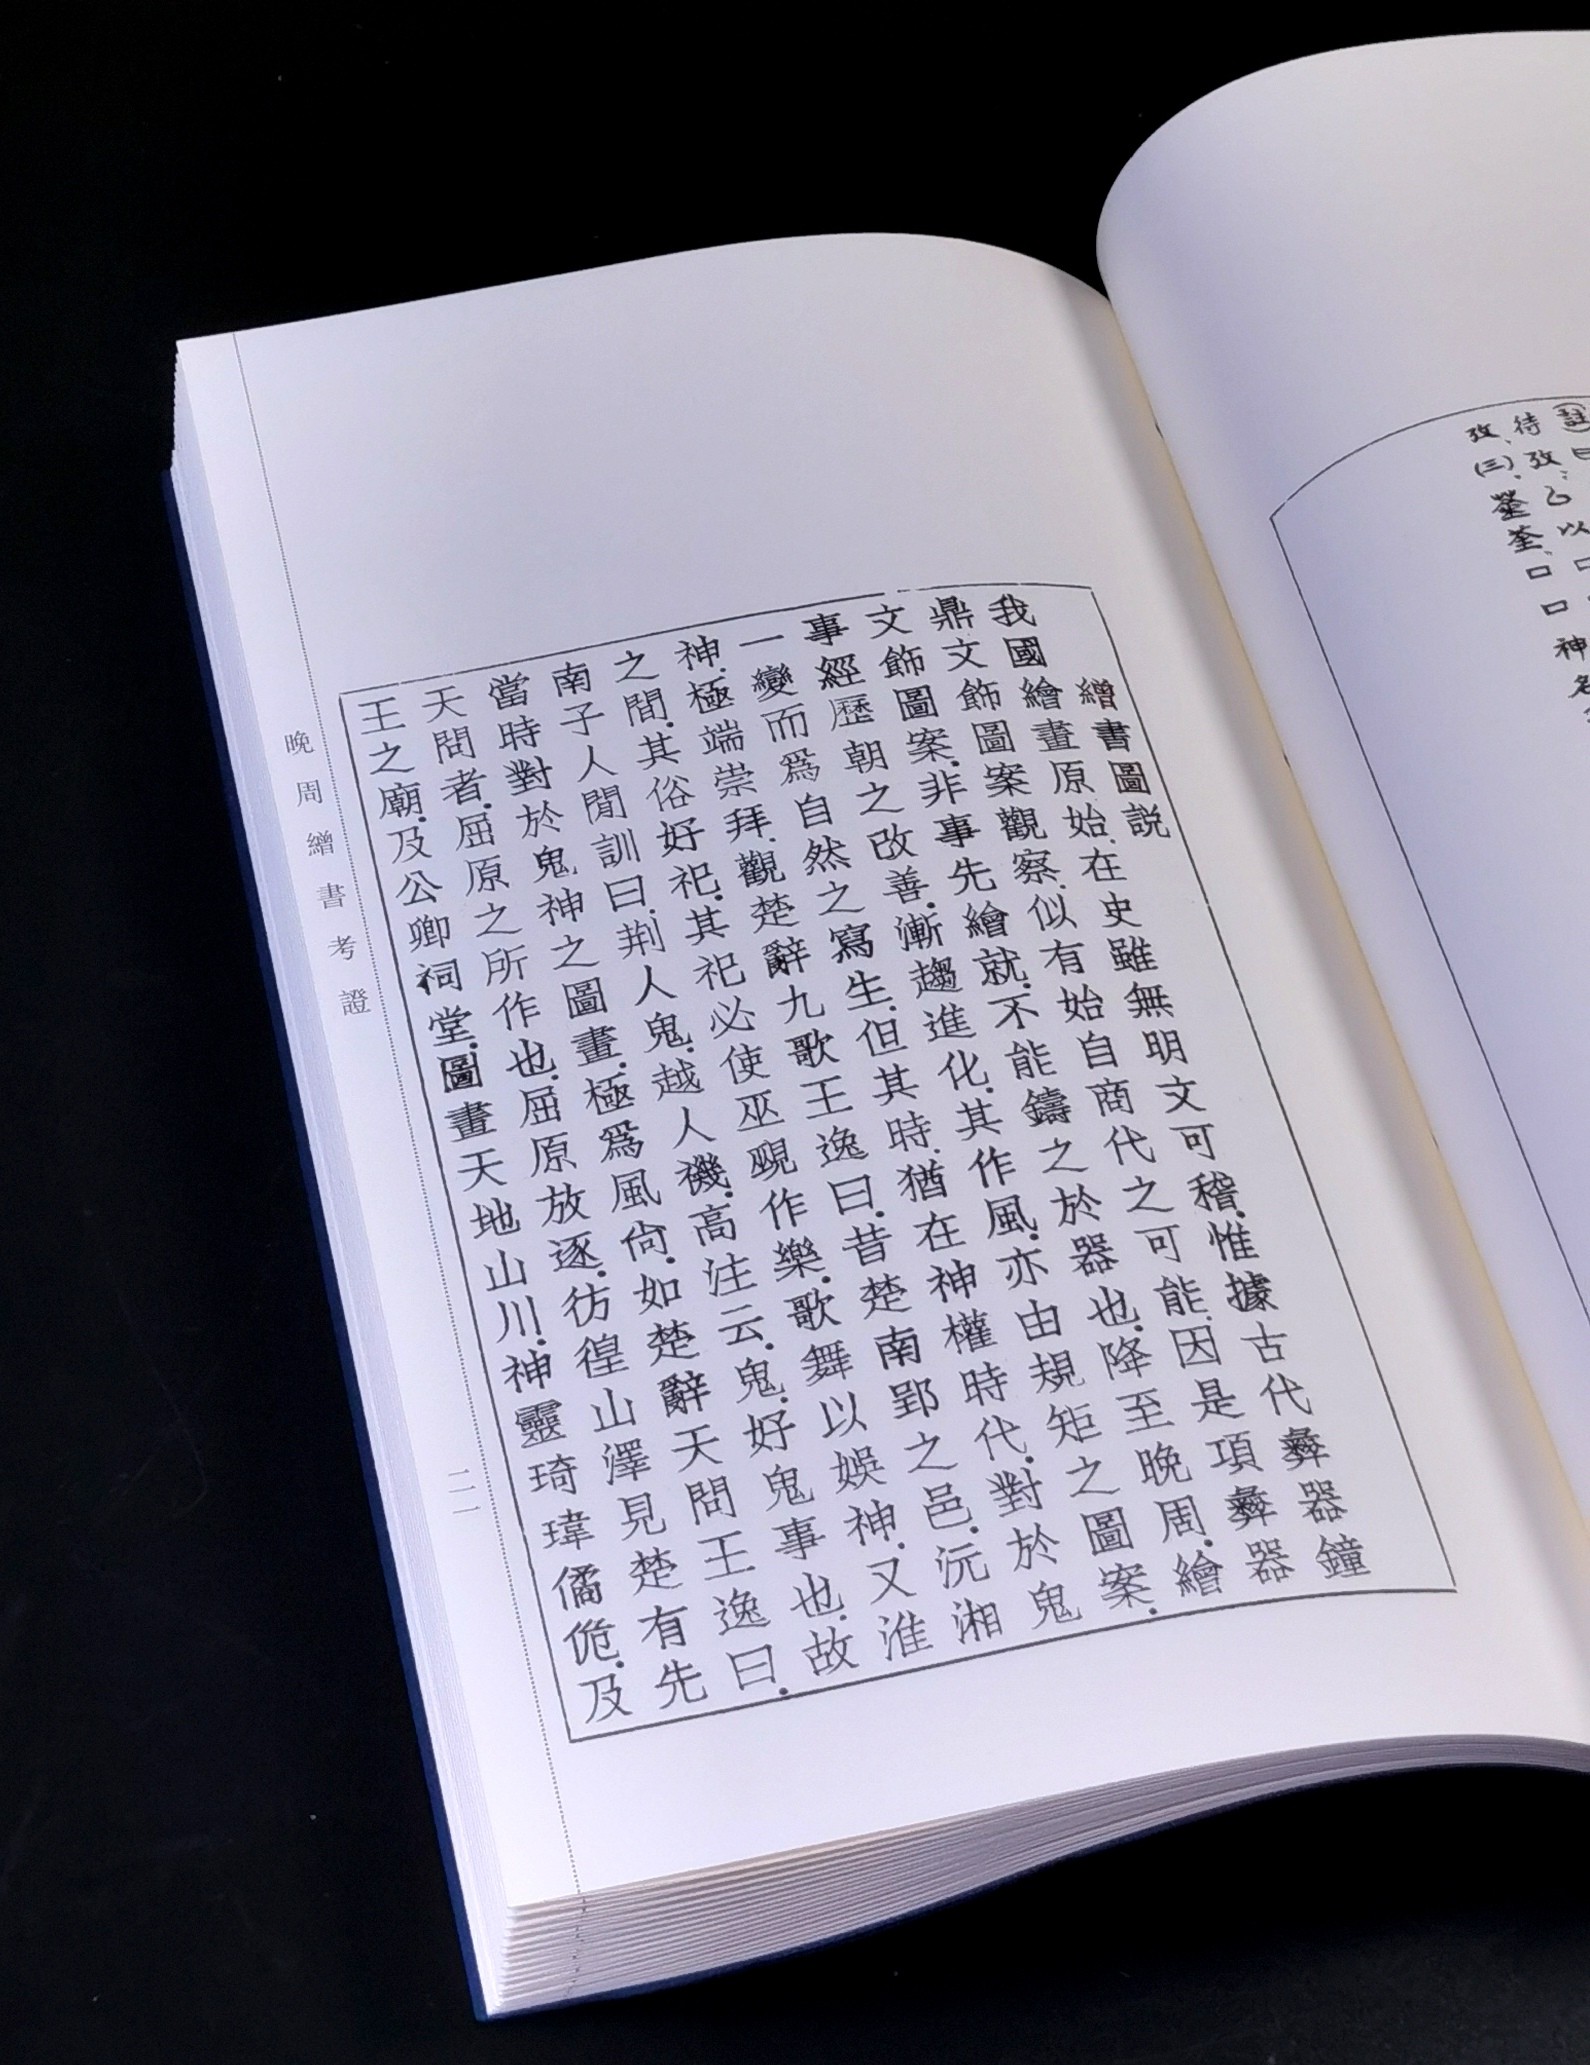 註
待攷以
攷(三)
神
繒書圖説
我國繪畫原始.在史雖無明文可稽.惟據古代彝器鐘
鼎文飾圖案觀察.似有始自商代之可能.因是項彝器
文飾圖案.非事先繪就.不能鑄之於器也.降至晚周.繪
事經歷朝之改善.漸趨進化.其作風.亦由規矩之圖案.
一變而爲自然之寫生.但其時.猶在神權時代.對於鬼
神.極端崇拜.觀楚辭九歌王逸曰.昔楚南郢之邑.沅湘
之間.其俗好祀.其祀必使巫覡作樂.歌舞以娛神.又淮
南子人閒訓曰.荆人鬼.越人禨.高注云.鬼.好鬼事也.故
當時對於鬼神之圖畫.極爲風尙.如楚辭天問王逸曰.
天問者.屈原之所作也.屈原放逐.彷徨山澤見楚有先
王之廟.及公卿祠堂.圖畫天地山川.神靈琦瑋僪佹.及
晚周繒書考證
二一